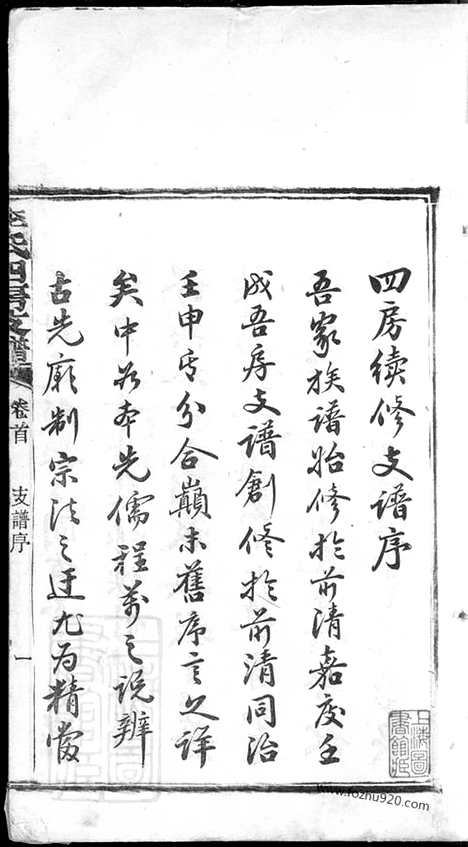 四房續修支譜序
吾家族譜始修於前清嘉慶壬
戌吾房支譜創修於前清同治
壬申其分合巔末舊序言之詳
矣中本先儒程萬之說辨
古先廟制宗法之迂尤為精當
氏四房支譜
卷首
支譜序
一
上海圖書館藏
www.fozhu920.com